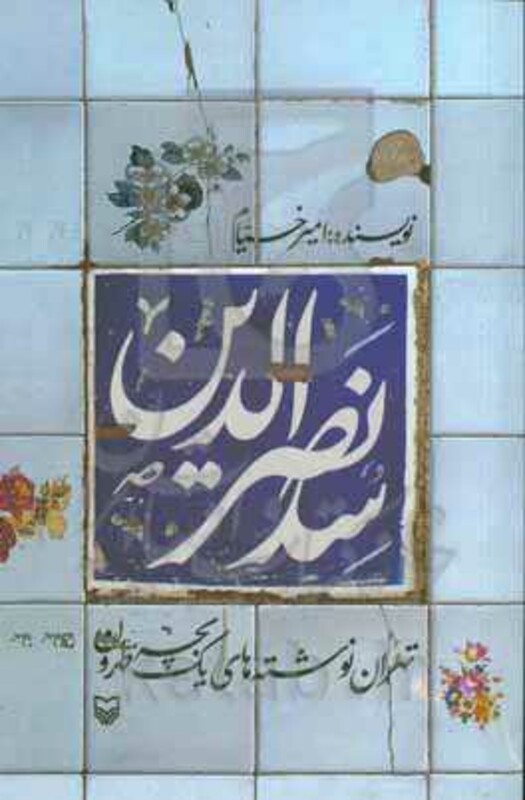 نویسنده: امیر خیام
سید نصرالدین
تهران نوشته‌های یک بچه